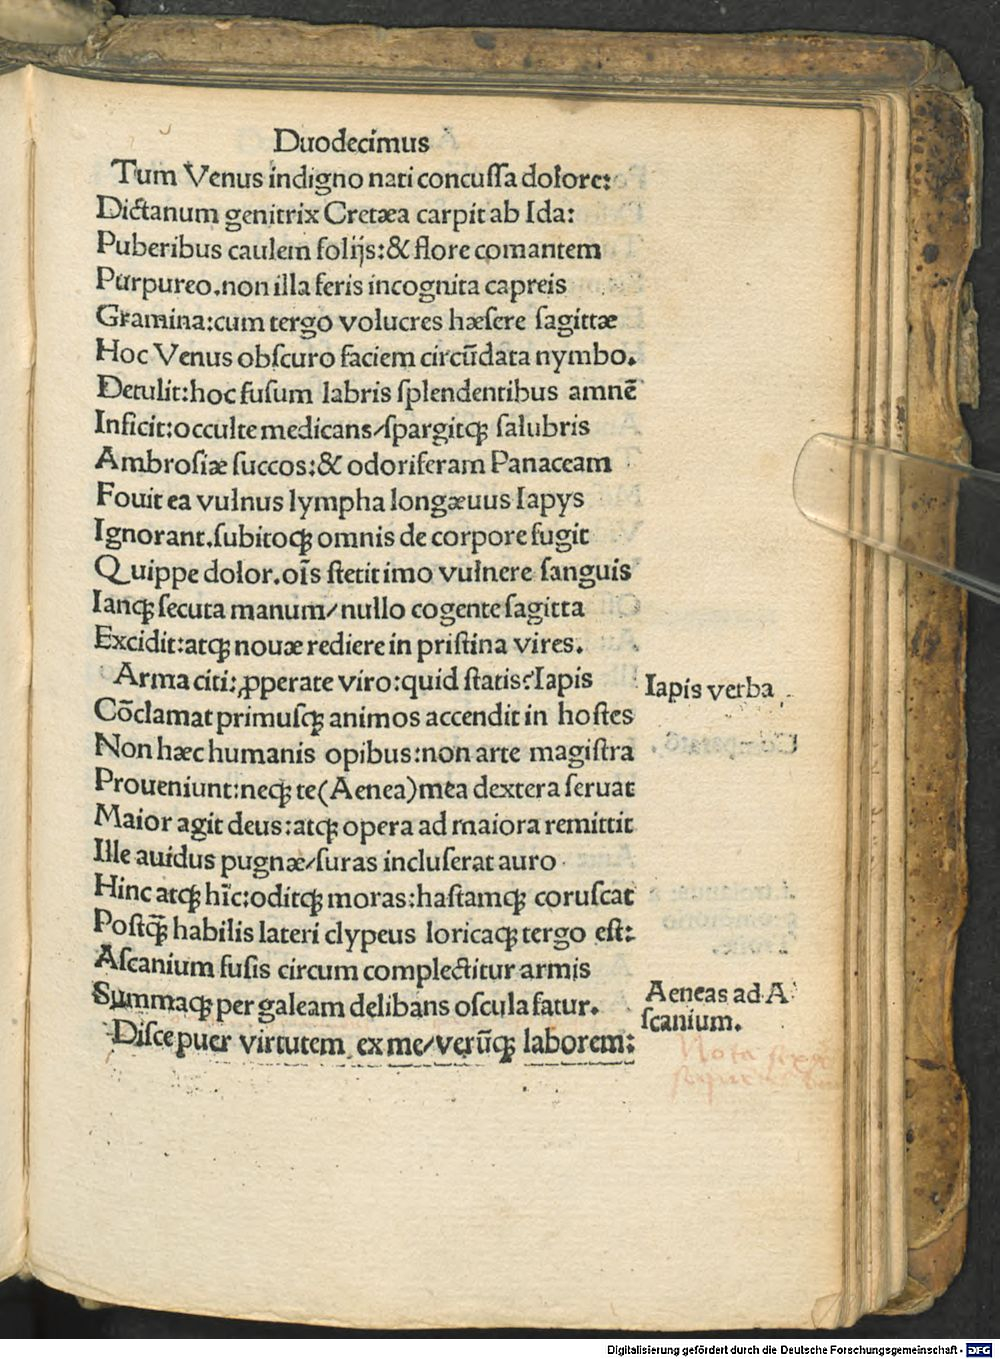 Duodecimus
Tum Venus indigno nati concuſſa dolore:
Dictanum genitrix Cretæa carpit ab Ida:
Puberibus caulem folijs:& flore comantem
Purpureo.non illa feris incognita capreis
Gramina:cum tergo volucres hæſere ſagittæ
Hoc Venus obſcuro faciem circūdata nymbo.
Detulit:hoc fuſum labris ſplendentibus amnē
Inficit:occulte medicans/ſpargitqꝫ ſalubris
Ambroſiæ ſuccos:& odoriferam Panaceam
Fouit ea vulnus lympha longæuus Iapys
Ignorant.ſubitoqꝫ omnis de corpore fugit
Quippe dolor.oīs ſtetit imo vulnere ſanguis
Ianqꝫ ſecuta manum/nullo cogente ſagitta
Excidit:atqꝫ nouæ rediere in priſtina vires.
Arma citi:ꝓperate viro:quid ſtatis?Iapis
Iapis verba
Cōclamat primuſqꝫ animos accendit in hoſtes
Non hæc humanis opibus:non arte magiſtra
Proueniunt:neqꝫ te(Aenea)mea dextera ſeruat
Maior agit deus:atqꝫ opera ad maiora remittit
Ille auidus pugnæ/ſuras incluſerat auro
Hinc atqꝫ hīc:oditqꝫ moras:haſtamqꝫ coruſcat
Poſtqꝫ̄ habilis lateri clypeus loricaqꝫ tergo eſt:
Aſcanium fuſis circum complectitur armis
Summaqꝫ per galeam delibans oſcula fatur.
Aeneas ad A
ſcanium.
Diſce puer virtutem ex me/verūqꝫ laborem:
Nota
Digitalisierung gefördert durch die Deutsche Forschungsgemeinschaft - DFG